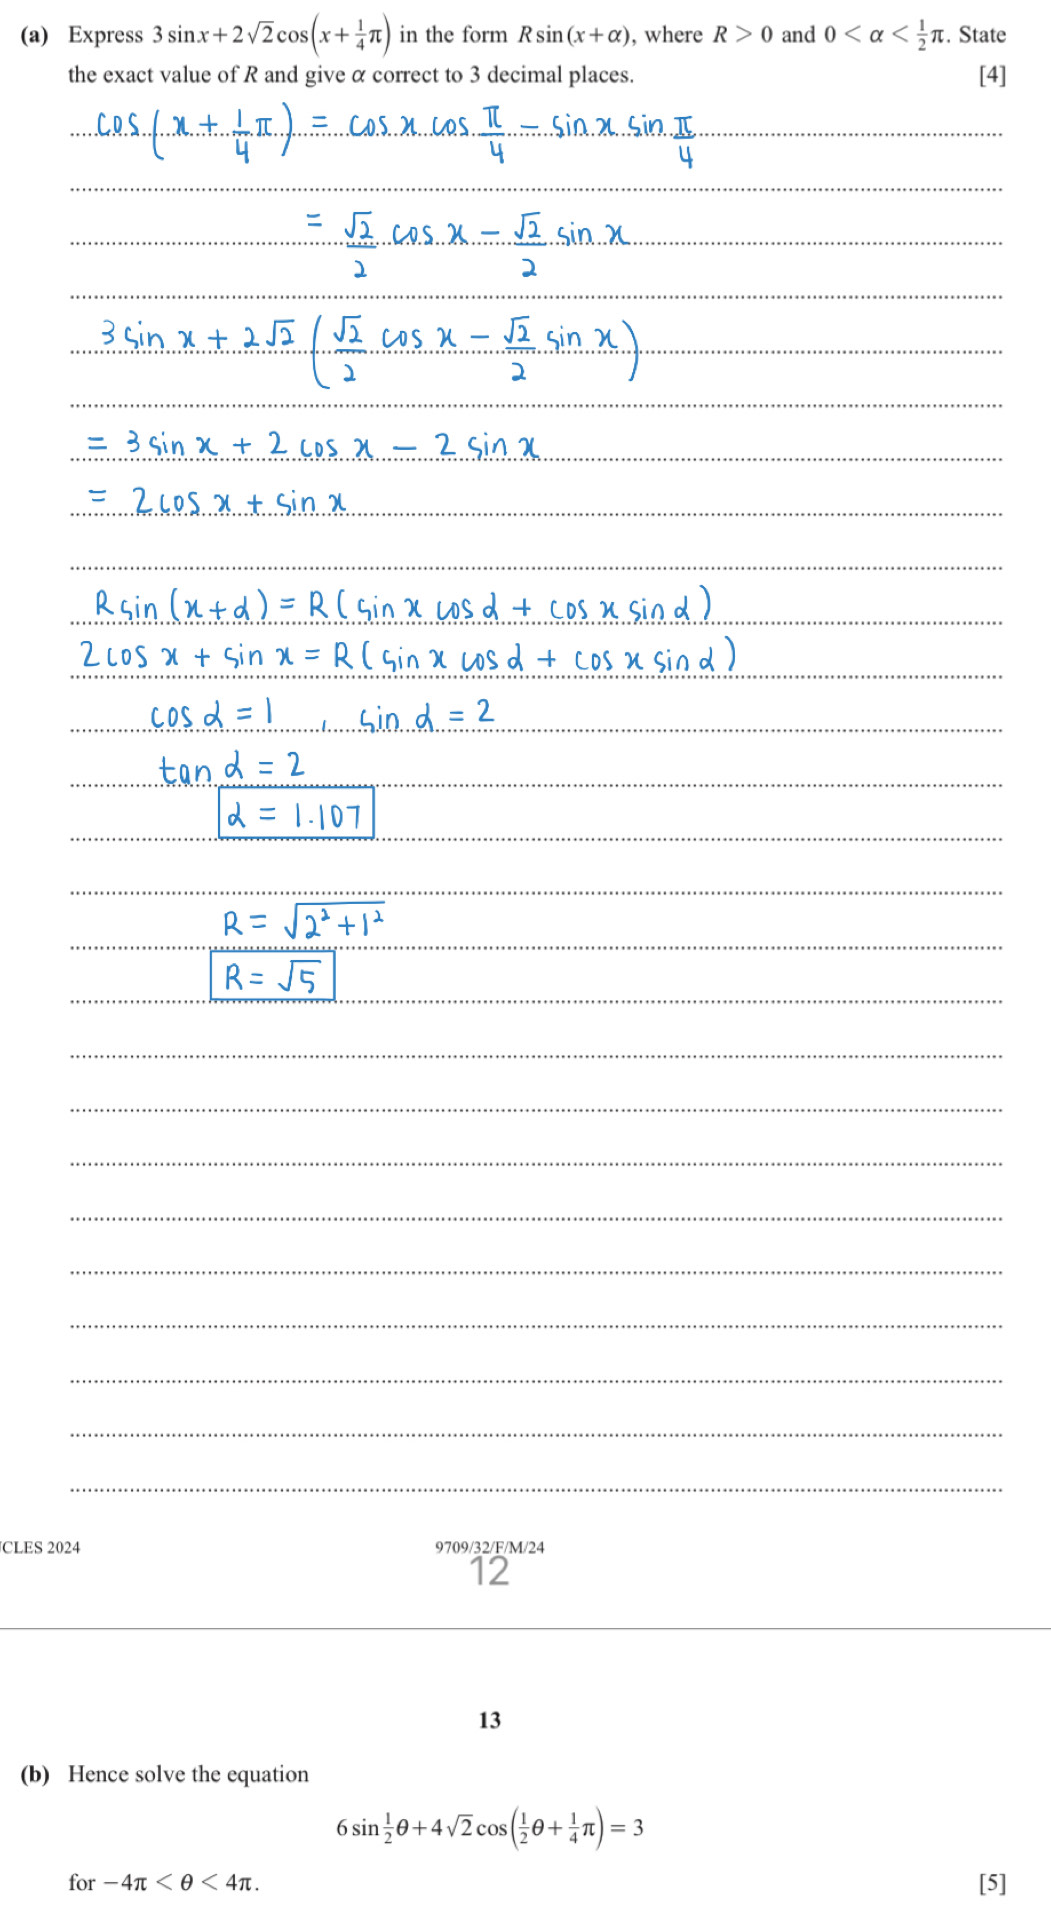 (a) Express 3 sin x + 2√2 cos(x + 1/4 π) in the form R sin(x + α), where R > 0 and 0 < α < 1/2 π. State
the exact value of R and give α correct to 3 decimal places. [4]
cos(x + 1/4 π) = cos x cos π/4 − sin x sin π/4
= √2/2 cos x − √2/2 sin x
3 sin x + 2√2 (√2/2 cos x − √2/2 sin x)
= 3 sin x + 2 cos x − 2 sin x
= 2 cos x + sin x
R sin(x + α) = R(sin x cos α + cos x sin α)
2 cos x + sin x = R(sin x cos α + cos x sin α)
cos α = 1 , sin α = 2
tan α = 2
α = 1.107
R = √(2² + 1²)
R = √5
CLES 2024 9709/32/F/M/24
12
13
(b) Hence solve the equation
6 sin 1/2 θ + 4√2 cos(1/2 θ + 1/4 π) = 3
for −4π < θ < 4π. [5]